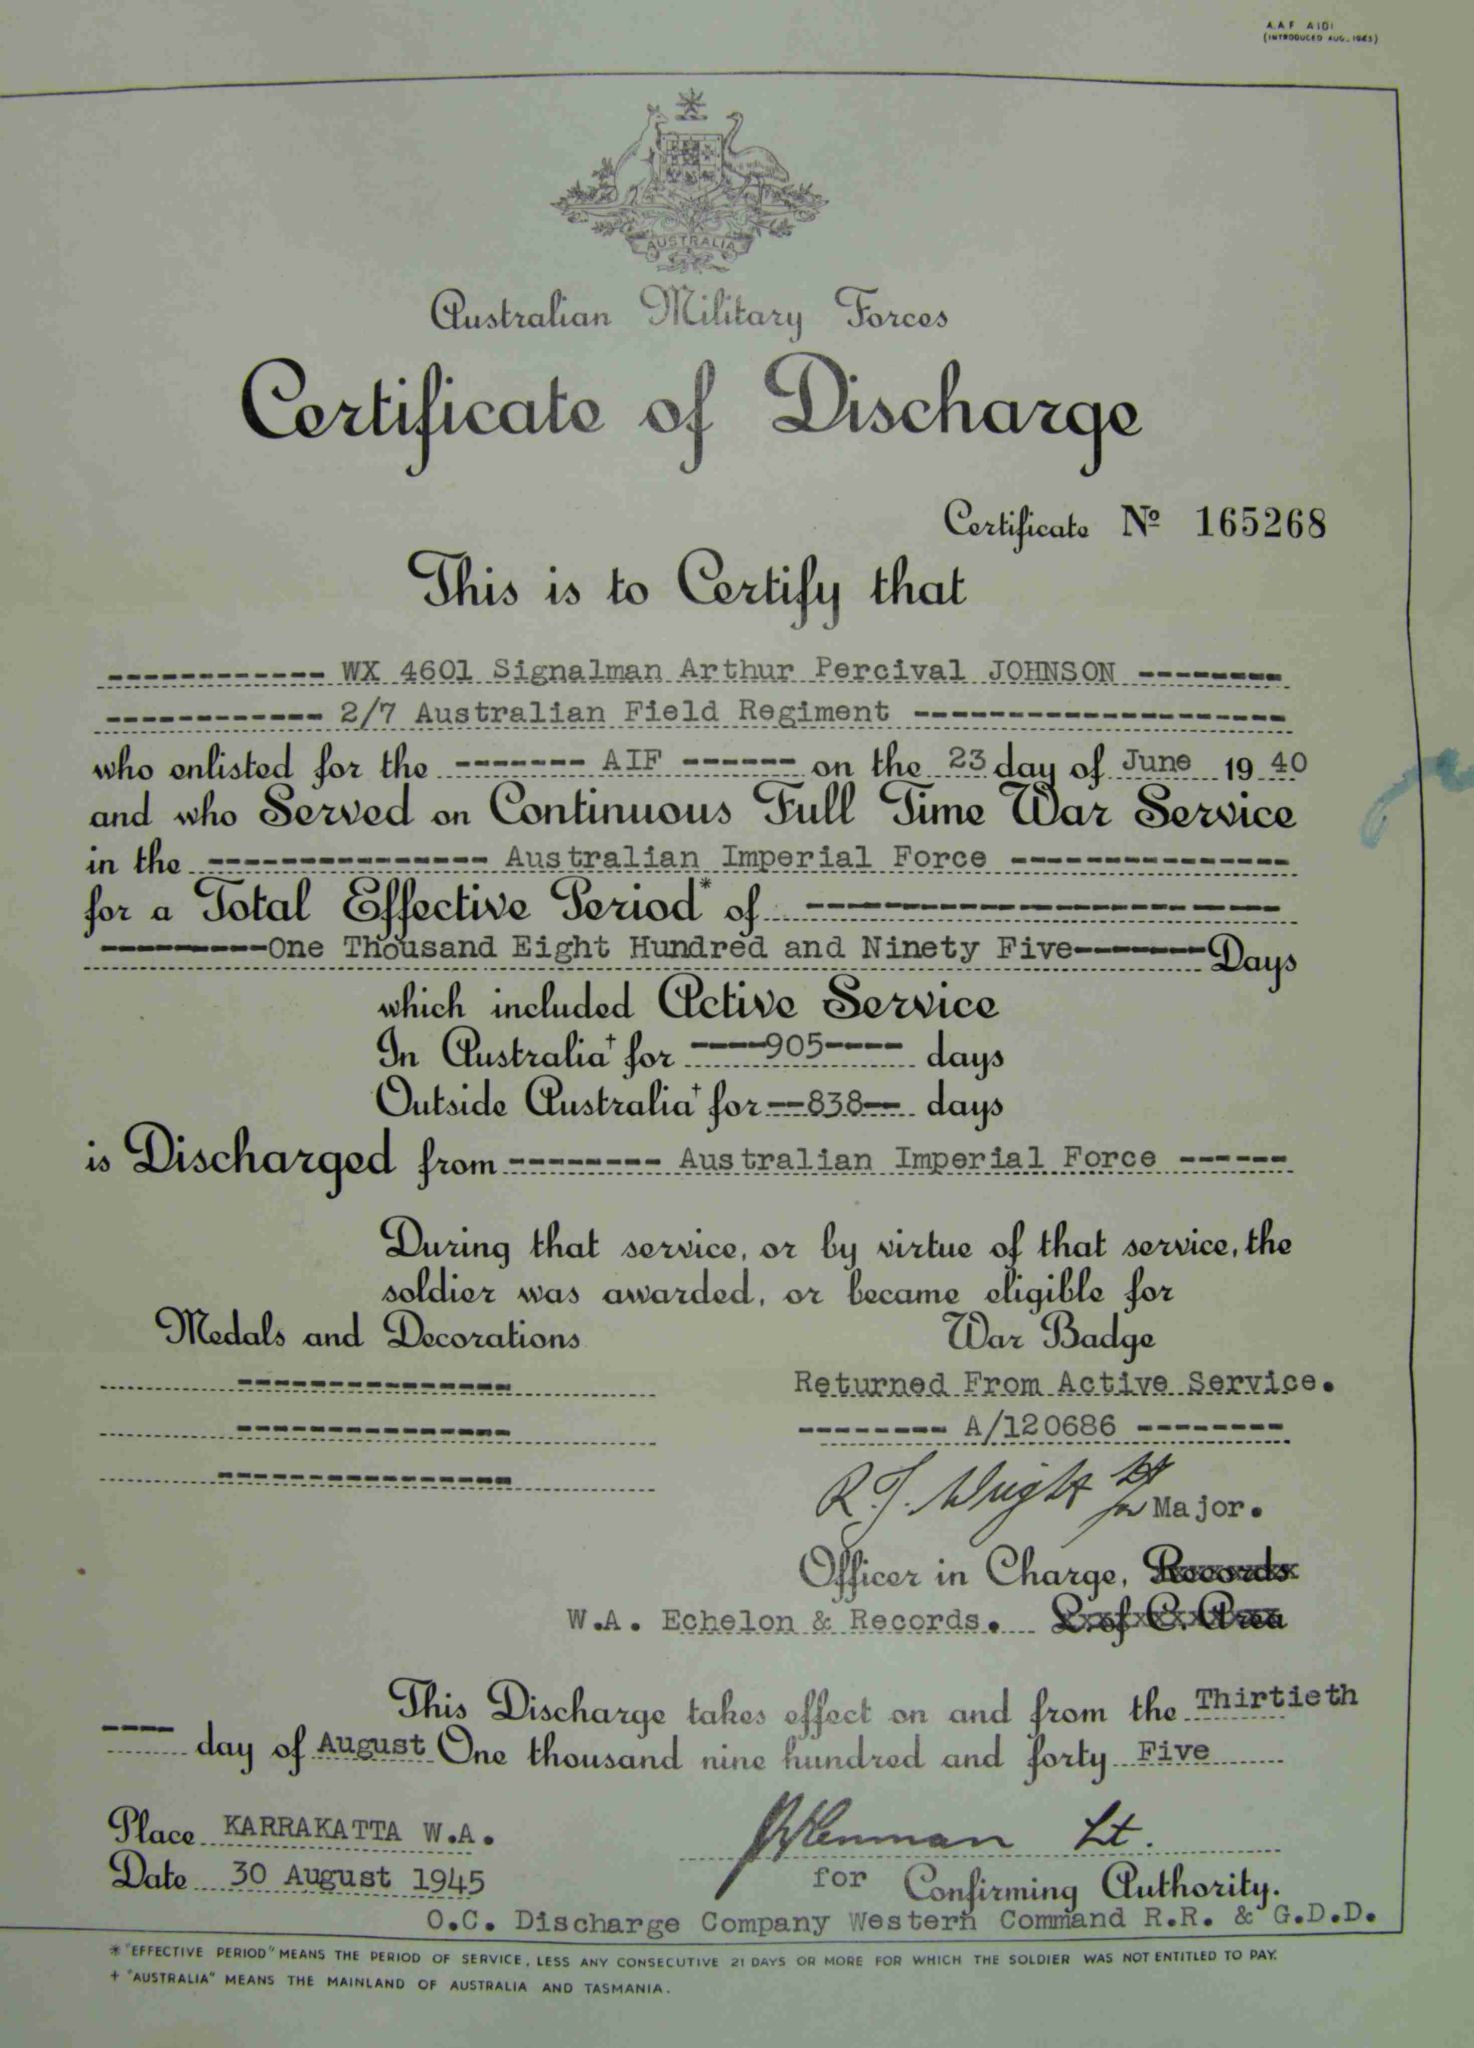 A.A.F. A101
(INTRODUCED AUG. 1943)
AUSTRALIA
Australian Military Forces
Certificate of Discharge
Certificate No 165268
This is to Certify that
------------ WX 4601 Signalman Arthur Percival JOHNSON --------
------------ 2/7 Australian Field Regiment --------------------
who enlisted for the ------- AIF ------ on the 23 day of June 19 40
and who Served on Continuous Full Time War Service
in the --------------- Australian Imperial Force ---------------
for a Total Effective Period* of --------------------------
---------One Thousand Eight Hundred and Ninety Five-------Days
which included Active Service
In Australia† for ----905---- days
Outside Australia† for --838-- days
is Discharged from -------- Australian Imperial Force ------
During that service, or by virtue of that service, the
soldier was awarded, or became eligible for
Medals and Decorations War Badge
--------------- Returned From Active Service.
--------------- -------- A/120686 --------
----------------
R.J. Wright for Major.
Officer in Charge, Records
W.A. Echelon & Records. L. of C. Area
This Discharge takes effect on and from the Thirtieth
---- day of August One thousand nine hundred and forty Five
Place KARRAKATTA W.A.
Lt.
Date 30 August 1945
for Confirming Authority.
O.C. Discharge Company Western Command R.R. & G.D.D.
* "EFFECTIVE PERIOD" MEANS THE PERIOD OF SERVICE, LESS ANY CONSECUTIVE 21 DAYS OR MORE FOR WHICH THE SOLDIER WAS NOT ENTITLED TO PAY.
† "AUSTRALIA" MEANS THE MAINLAND OF AUSTRALIA AND TASMANIA.